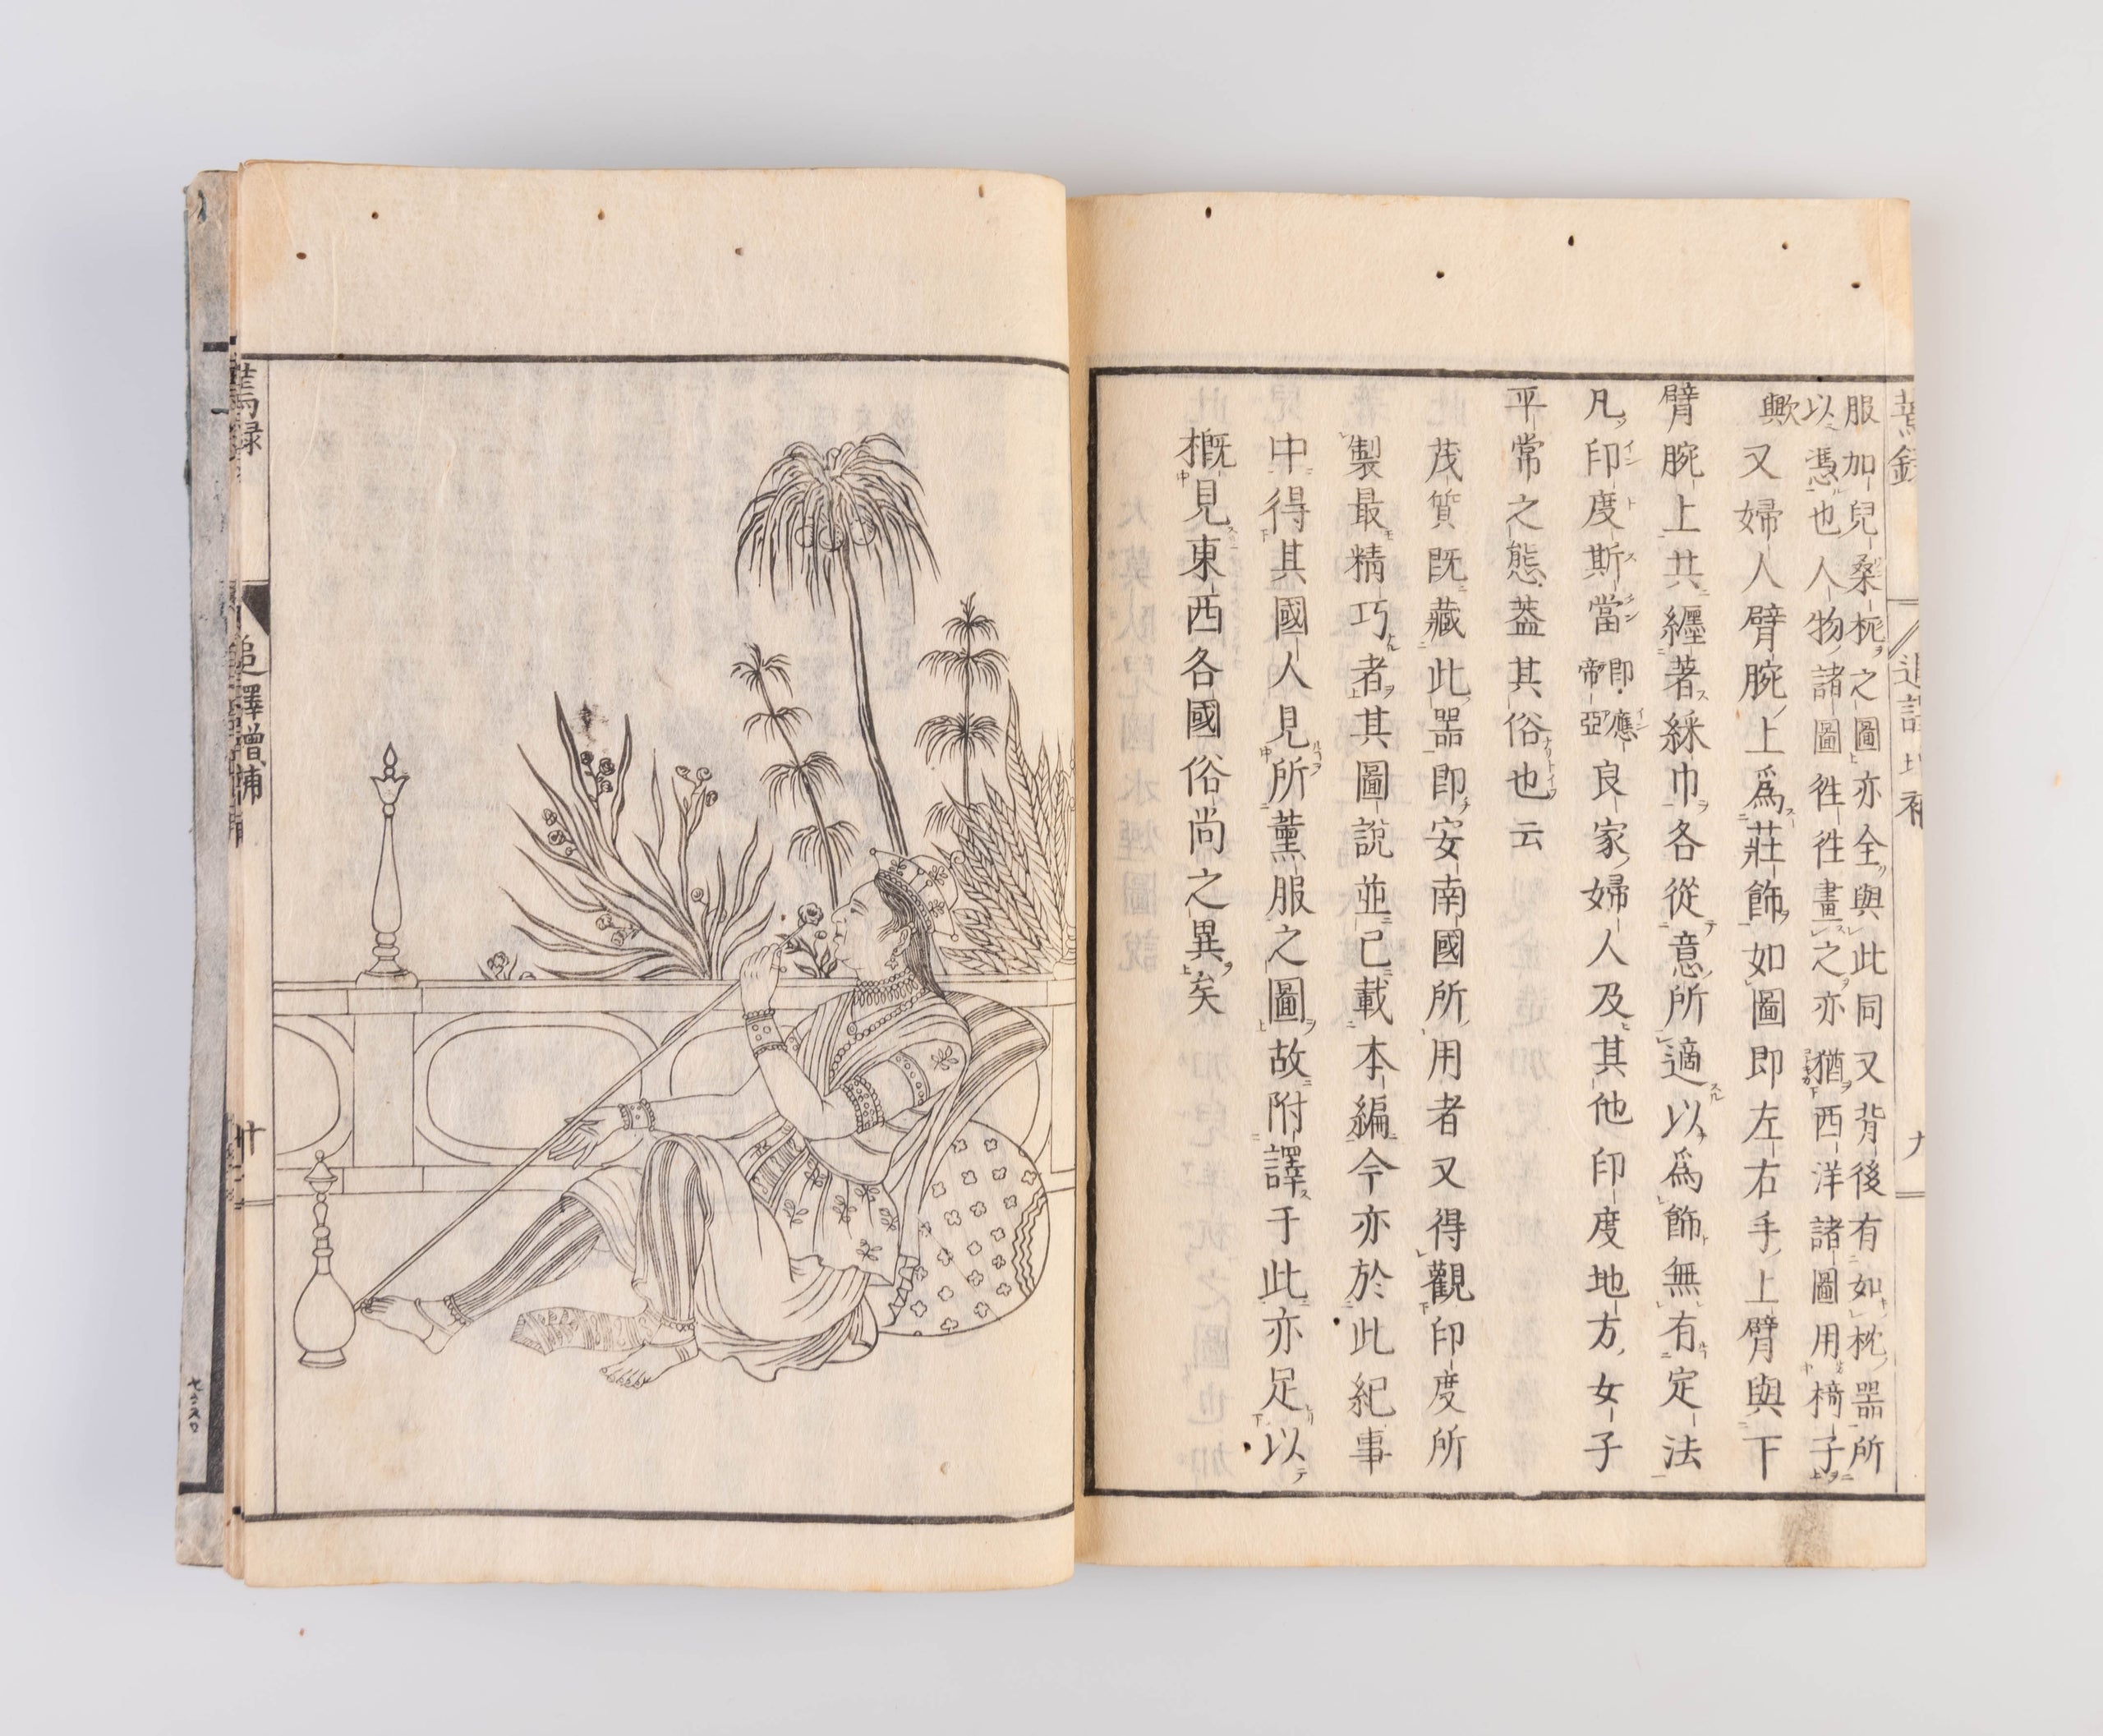 服加兒桑杬之圖亦全與此同又背後有如枕器所
以憑也人物諸圖徃徃畫之亦猶西洋諸圖用椅子
歟 又婦人臂腕上爲莊飾如圖即左右手上臂與下
臂腕上共纒著綵巾各從意所適以爲飾無有定法
凡印度斯當即應帝亞良家婦人及其他印度地方女子
平常之態葢其俗也云
茂質既藏此器即安南國所用者又得觀印度所
製最精巧者其圖說並已載本編今亦於此紀事
中得其國人見所薰服之圖故附譯于此亦足以
概見東西各國俗尚之異矣
蔫録 追譯增補 十